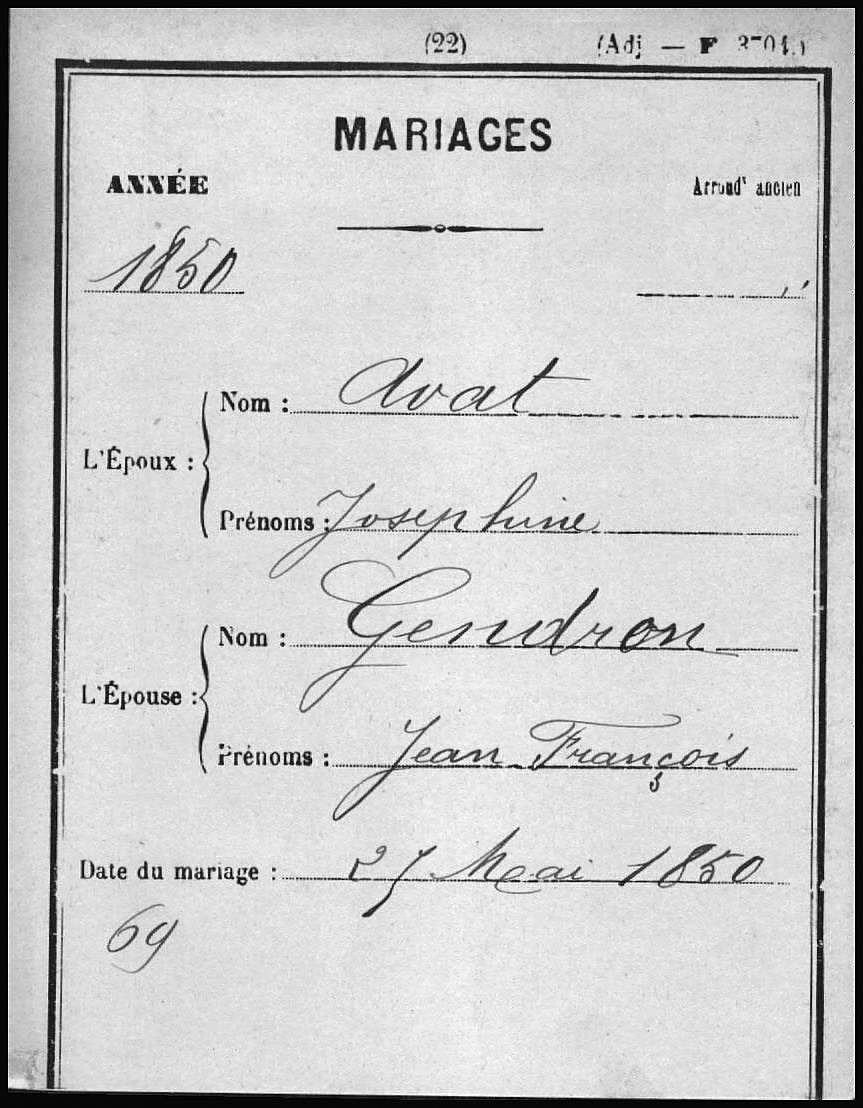 (22) (Adj — F 3704.)
MARIAGES
ANNÉE Arrondt ancien
1850
L'Époux :
Nom : Avat
Prénoms : Josephine
L'Épouse :
Nom : Gendron
Prénoms : Jean François
Date du mariage : 27 Mai 1850
69